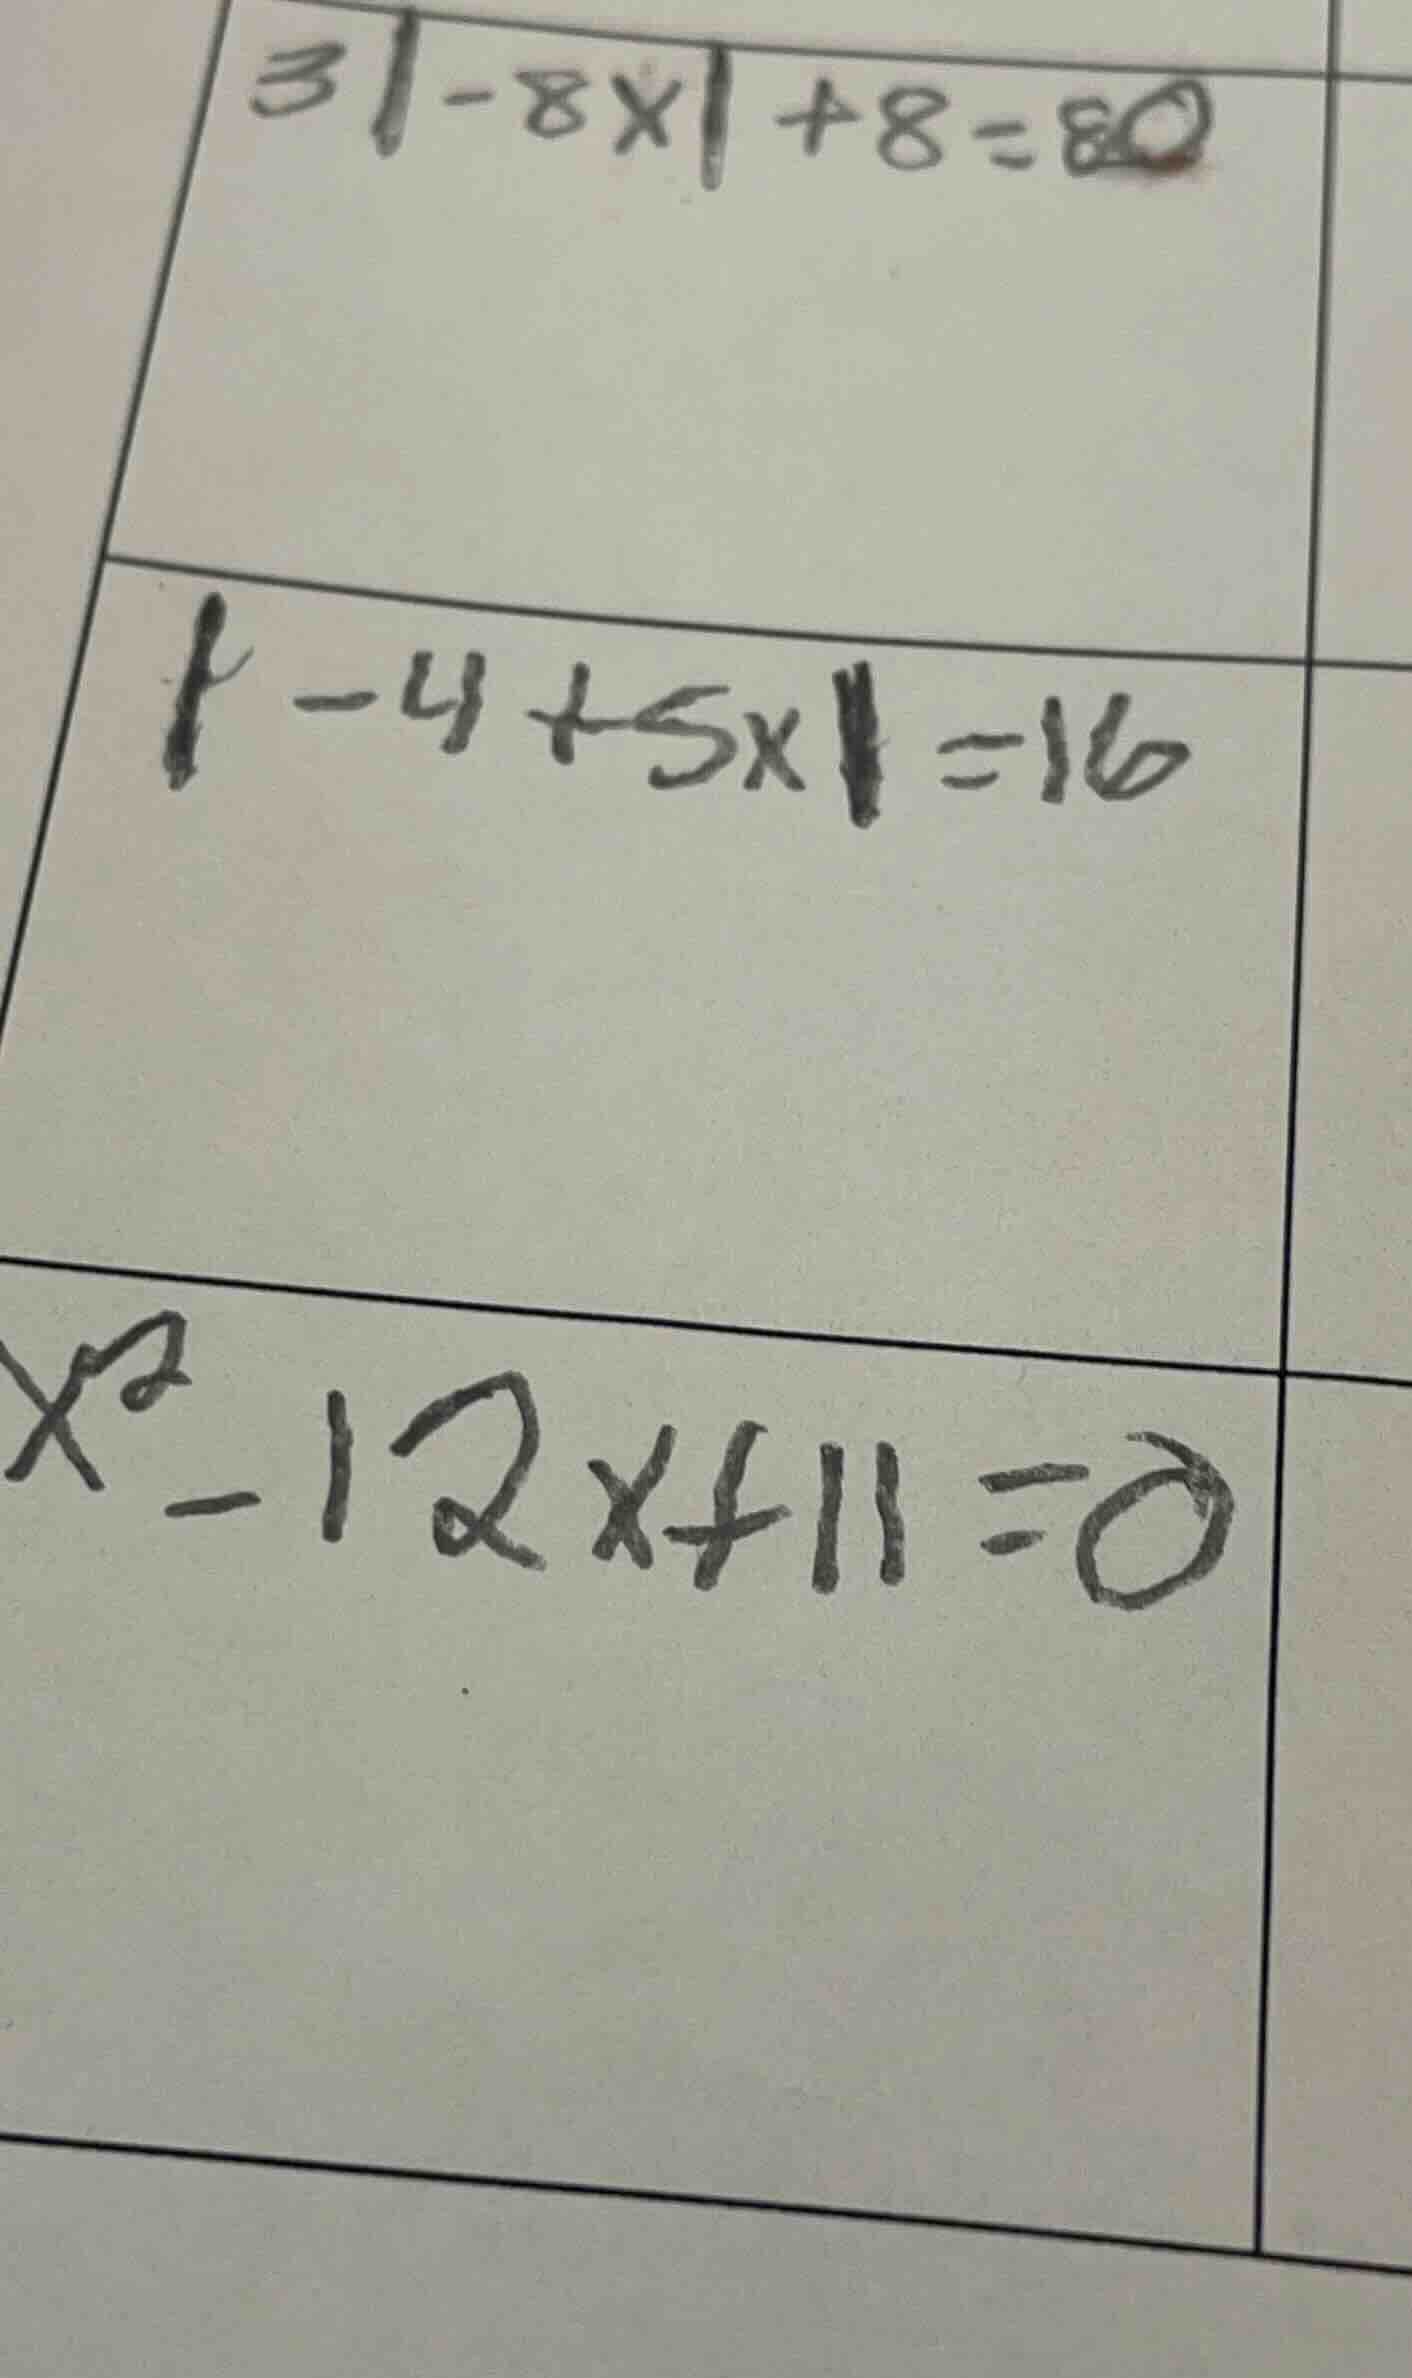 3|-8x|+8=80
|-4+5x|=16
x²-12x+11=0